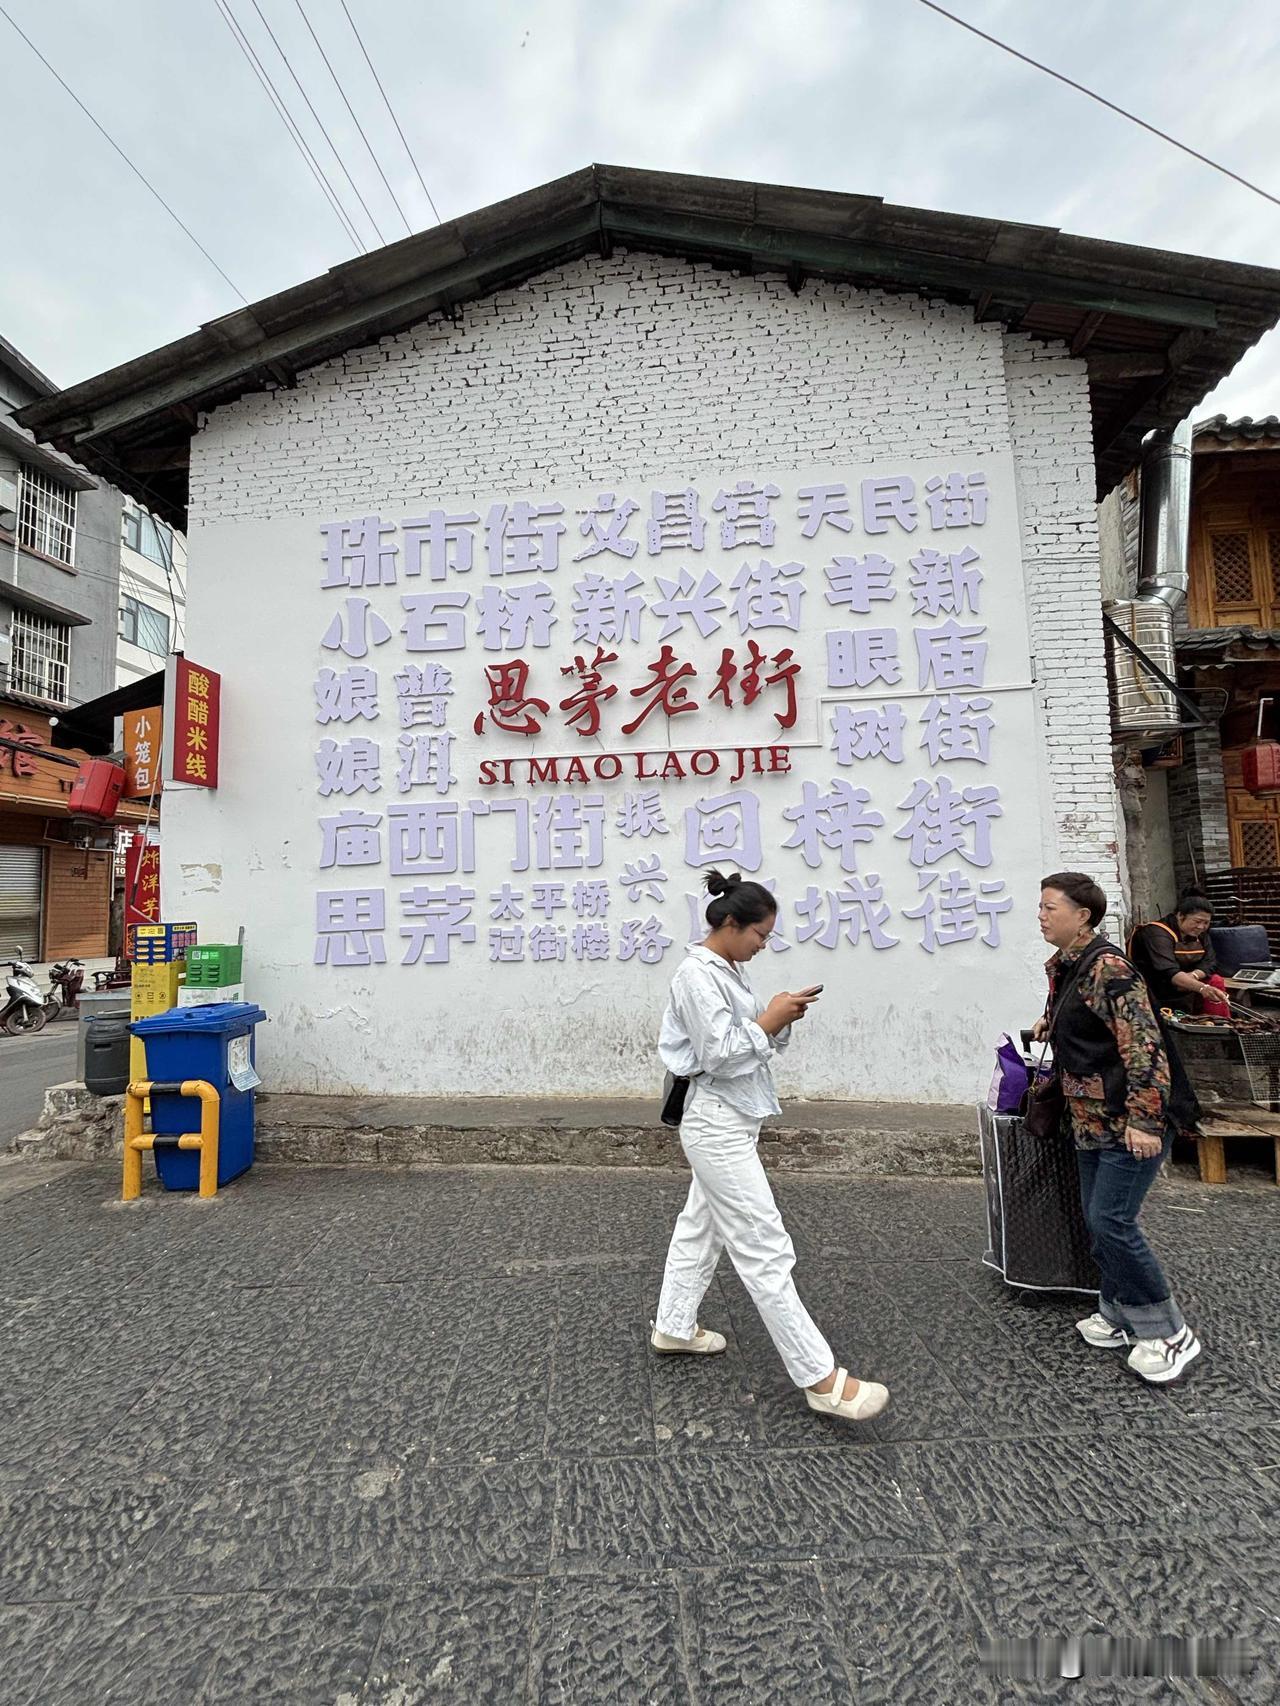 珠市街 文昌宫 天民街
小石桥 新兴街
羊眼树
新庙街
娘娘庙
普洱
思茅老街
SI MAO LAO JIE
西门街
振兴路
回梓街
思茅
太平桥
过街楼
城街
酸醋米线
小笼包
炸洋芋